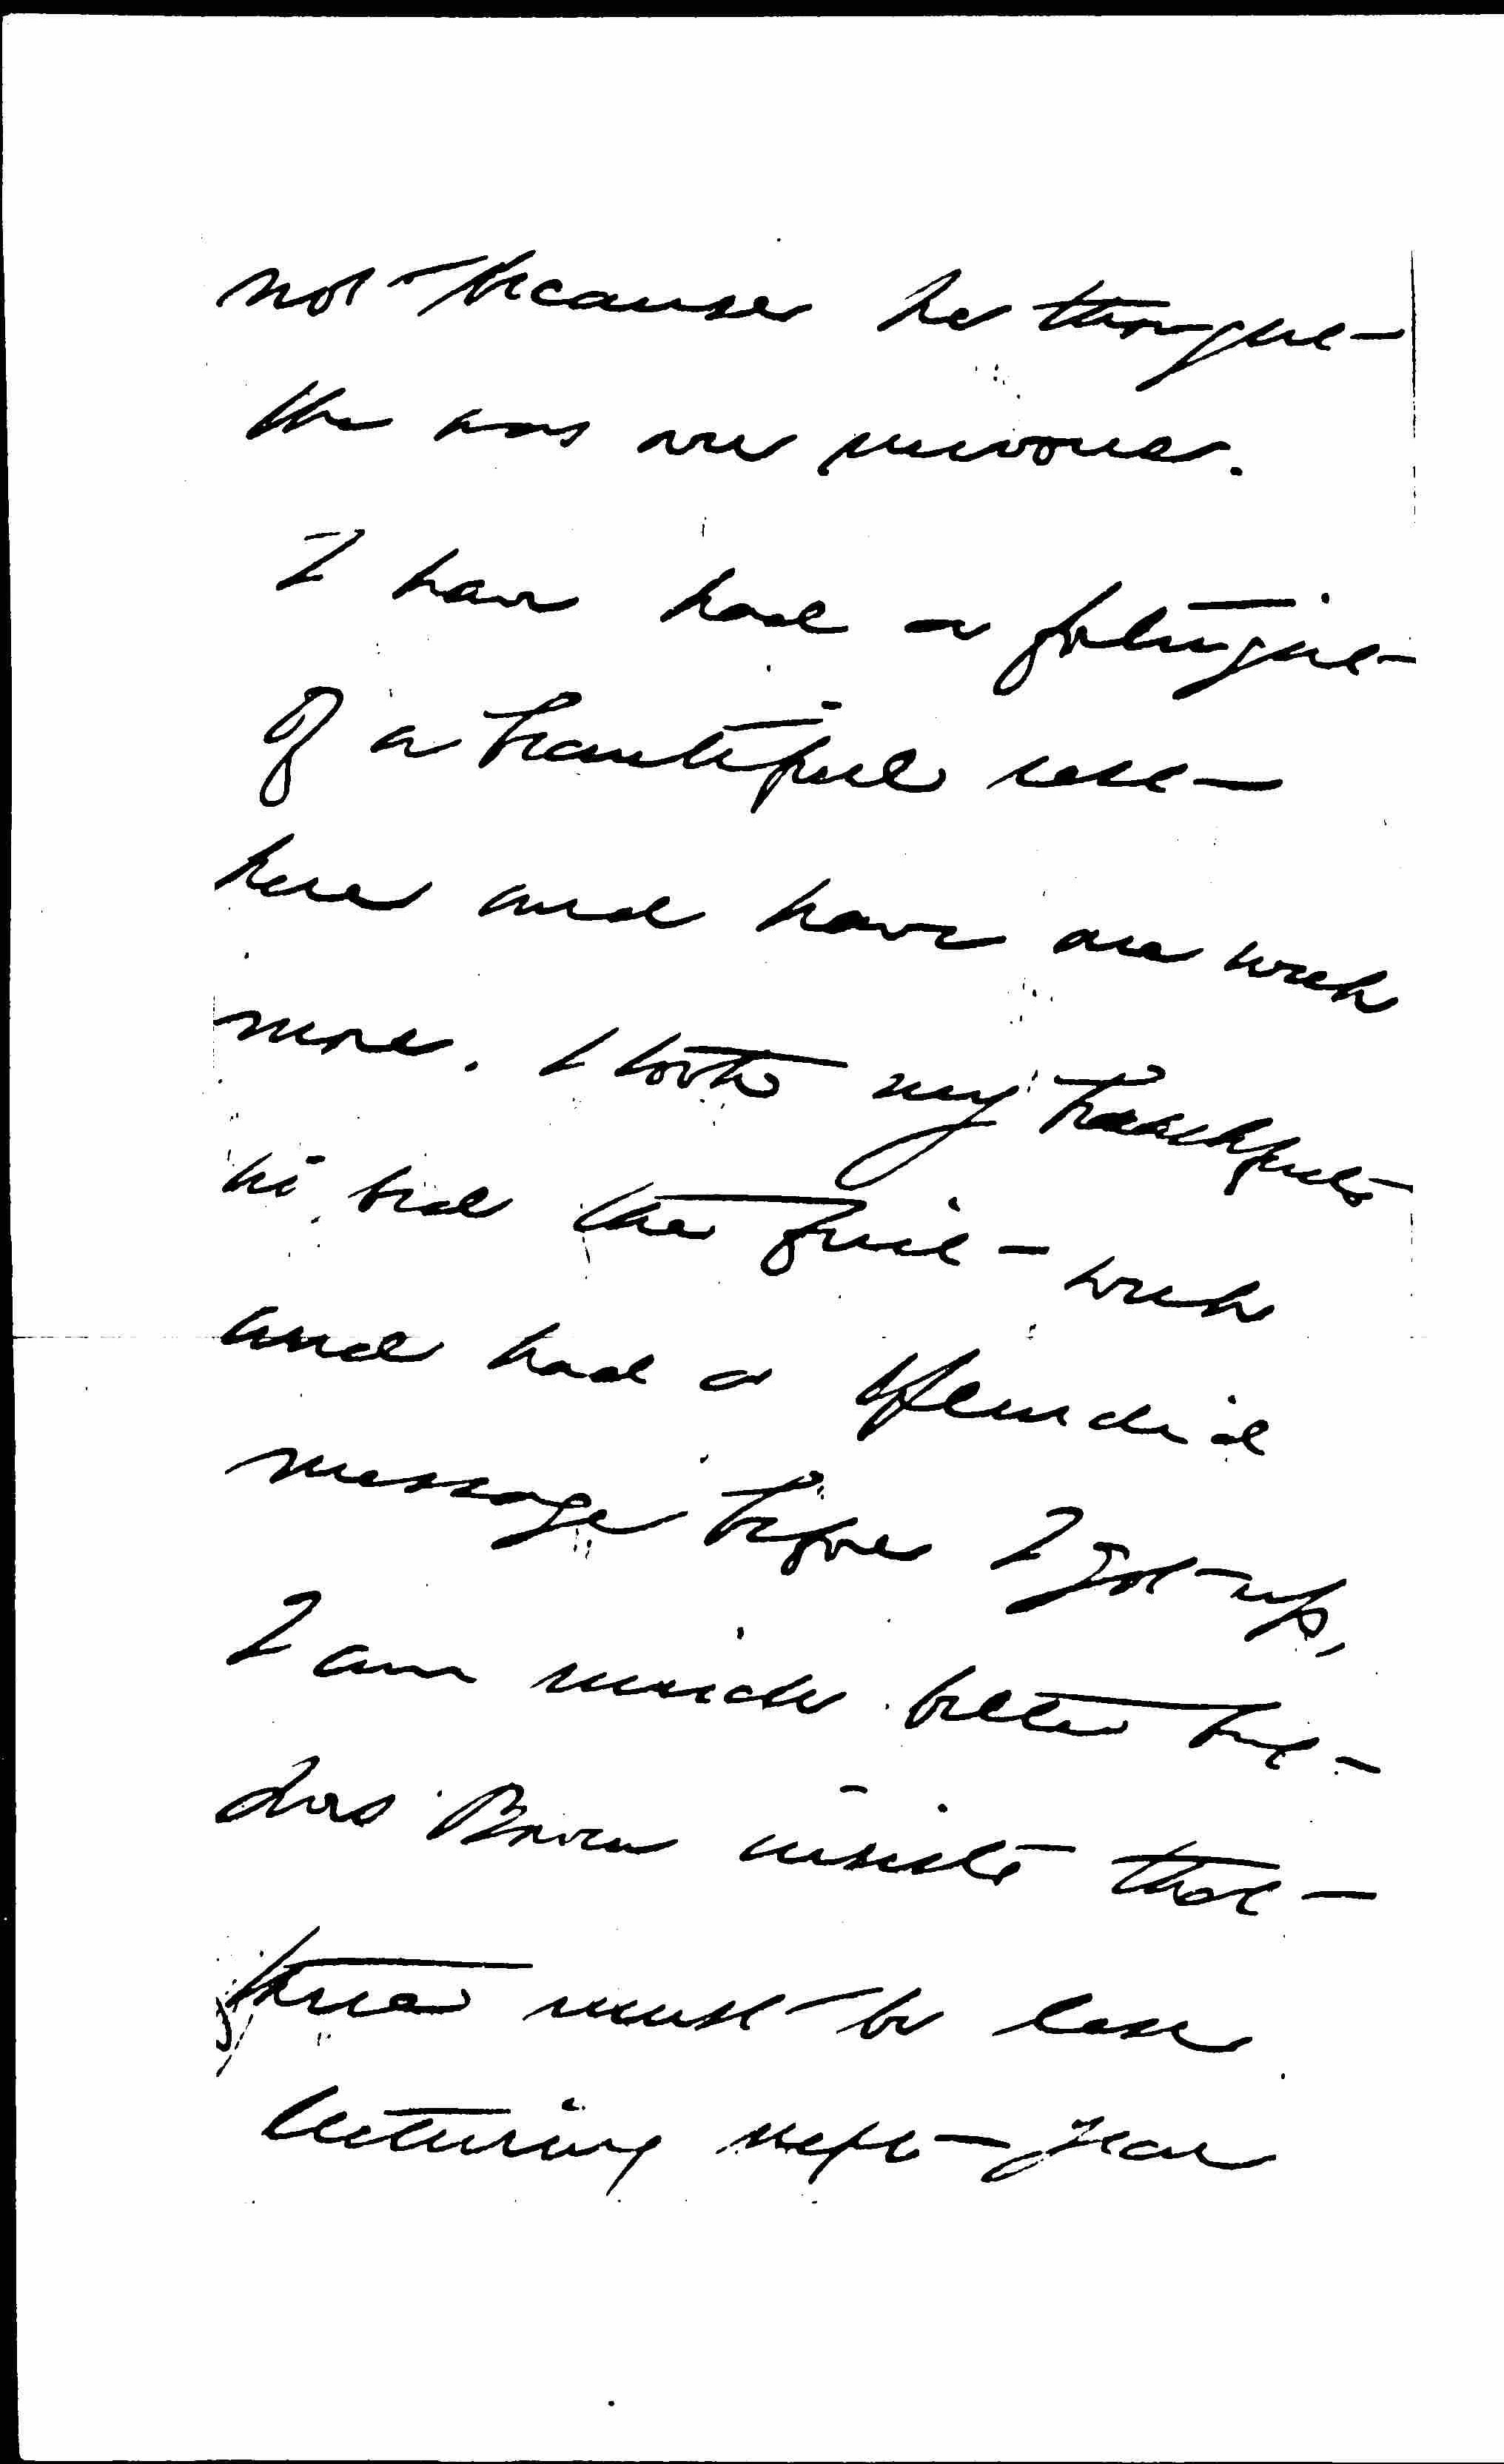 not because he thought
she was over nervous.
I have had a fortnight
of a beautiful rest
here and have one week
more. I took my breakfasts
in bed the first week
and had a splendid
massage before I got up.
I am much better but
does Brown insists that
there must be less
lecturing next year